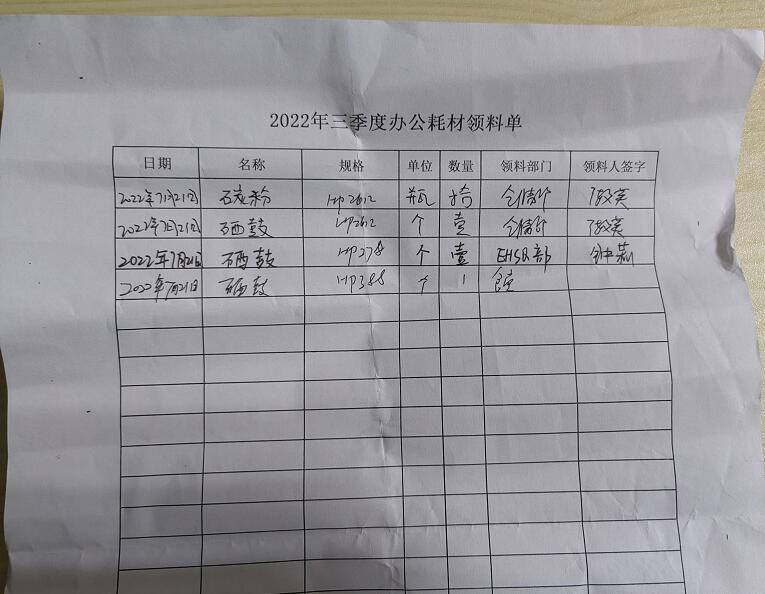 2022年三季度办公耗材领料单
日期 名称 规格 单位 数量 领料部门 领料人签字
2022年7月21日 碳粉 HP2612 瓶
2022年7月21日 硒鼓 HP2612 个 壹
2022年7月21日 硒鼓 HP278 个 壹 EHSQ部
2022年7月21日 硒鼓 HP388 个 1